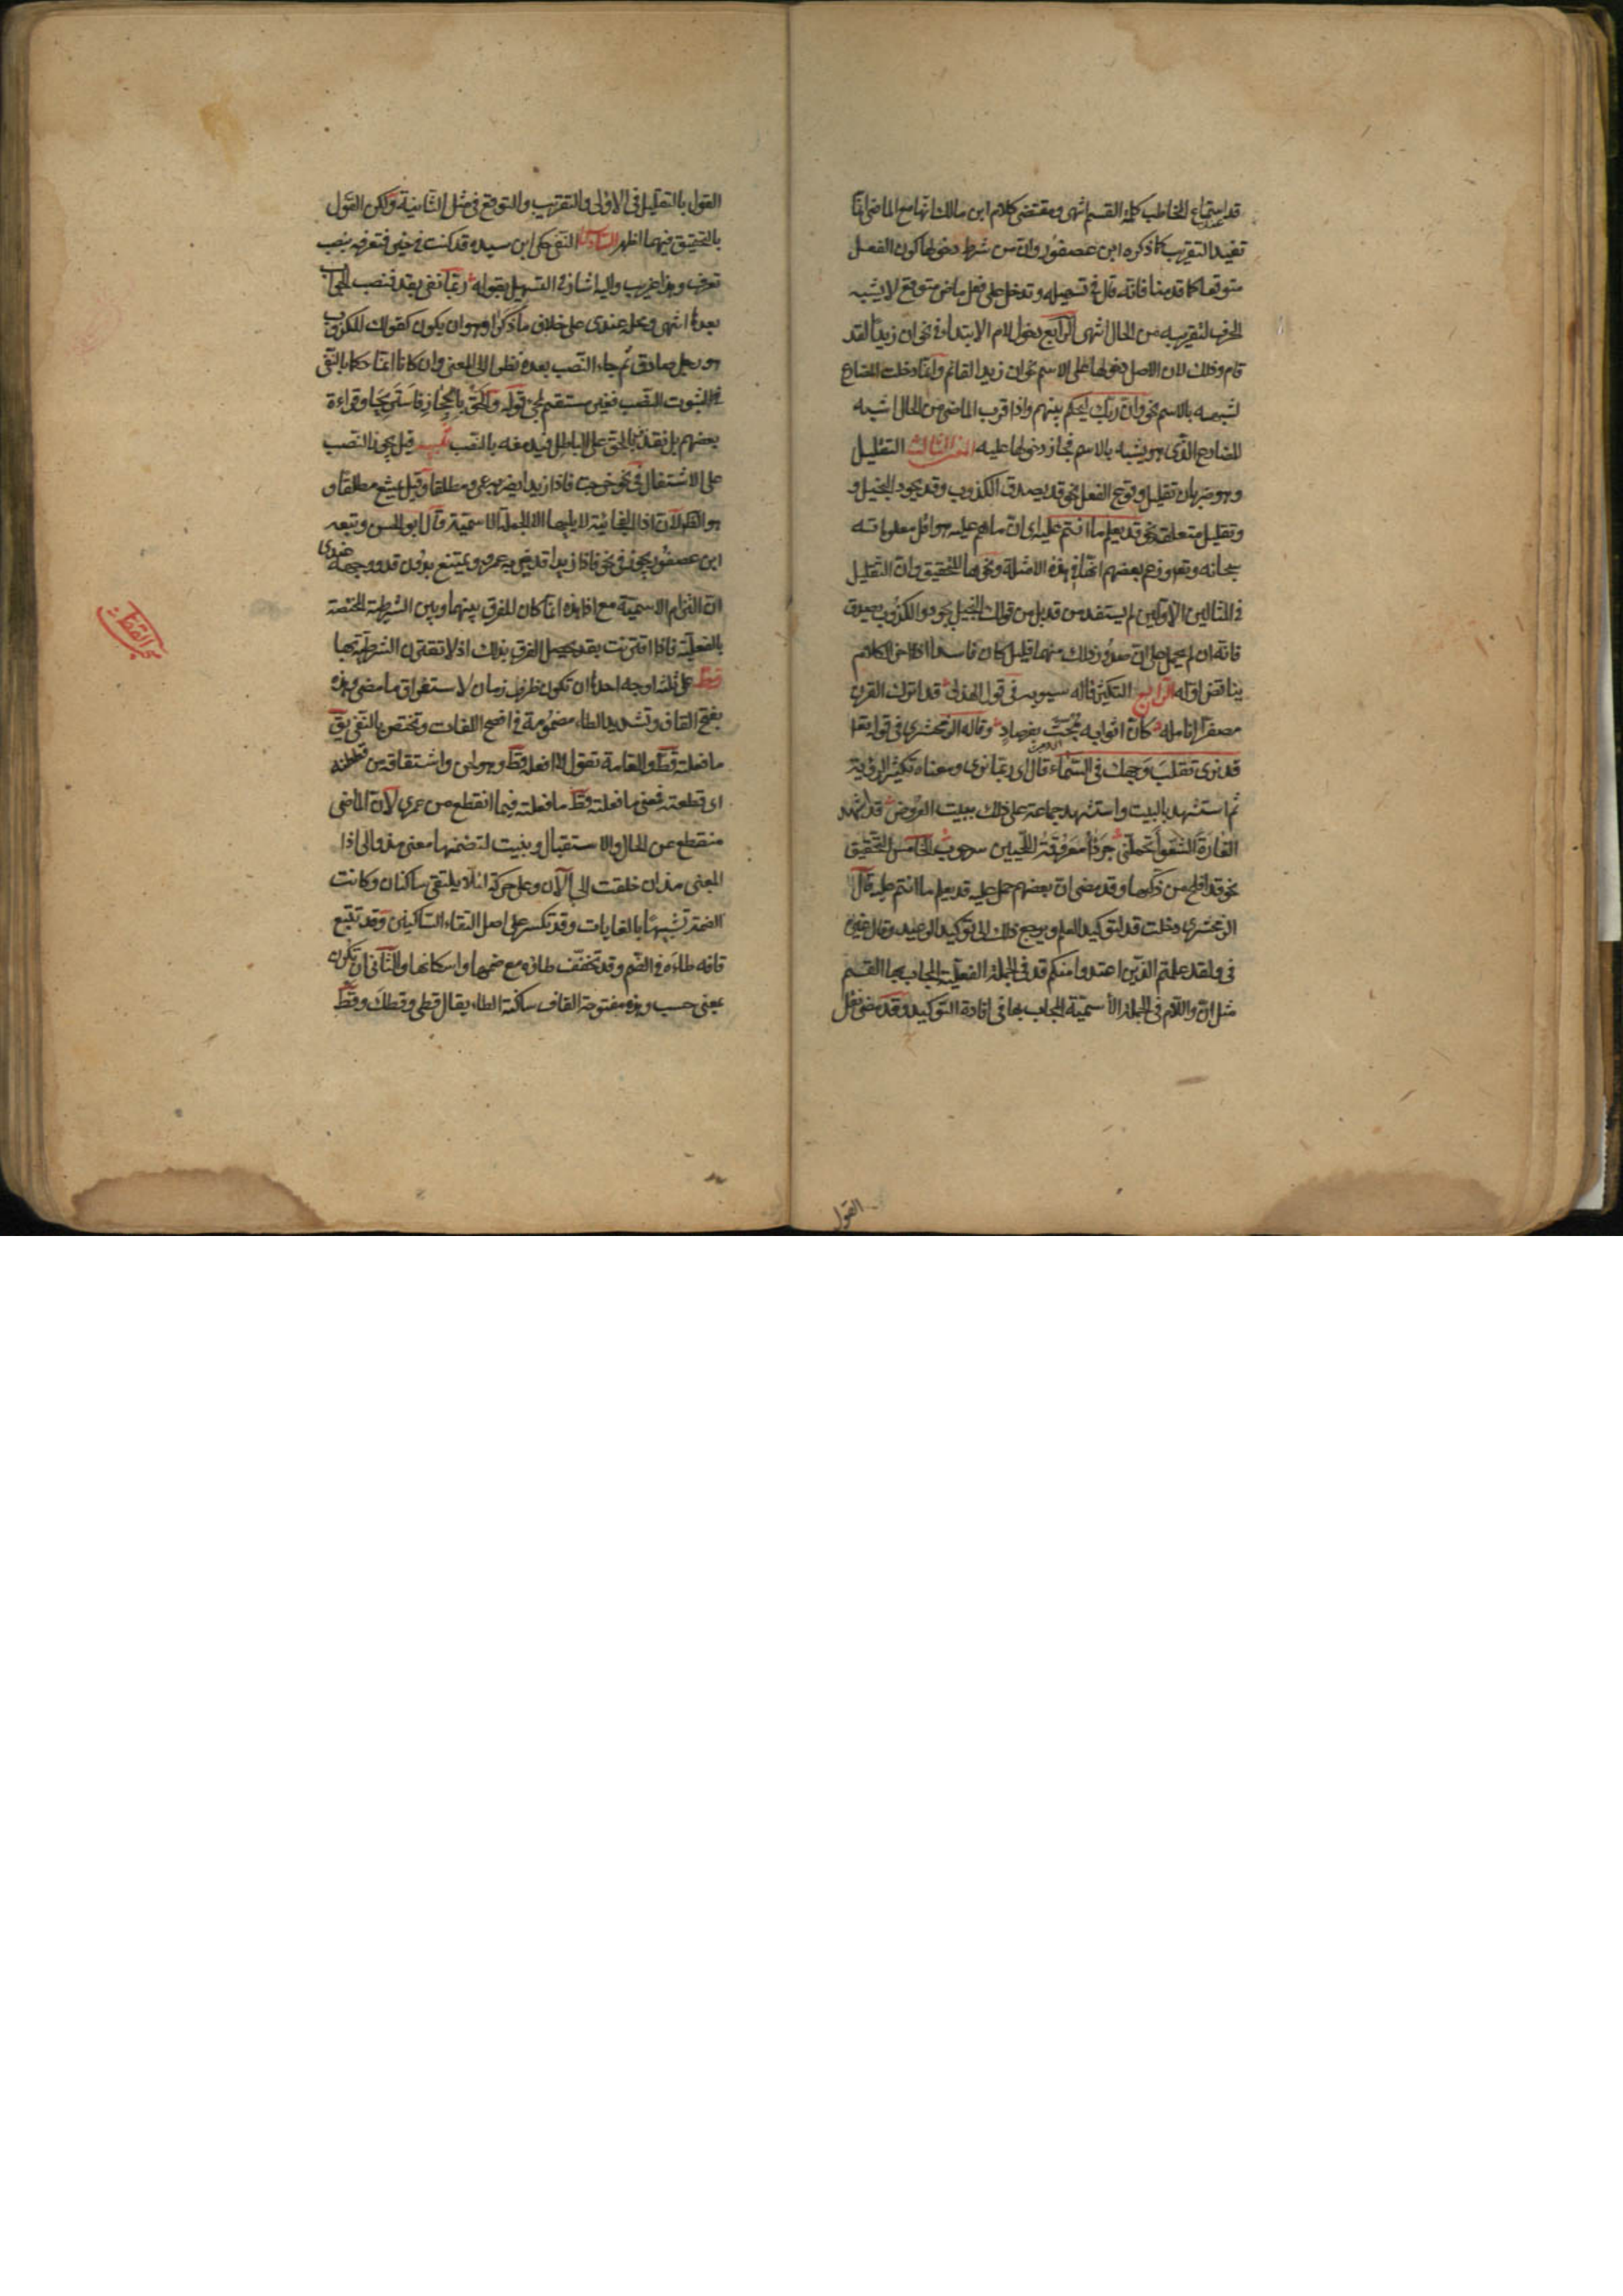 قد عند استماع المخاطب كلمة القسم انتهى ومقتضى كلام ابن مالك انها مع الماضى انما
تفيد التقريب كما ذكره ابن عصفور وان من شرط دخولها كون الفعل
متوقعا كما قدمنا فانه قال فى تسهيله وتدخل على فعل ماض متوقع لا يشبه
الحرف لتقريبه من الحال انتهى الرابع دخول لام الابتداء فى نحو ان زيدا لقد
قام وذلك لان الاصل دخولها على الاسم نحو ان زيدا لقائم وانما دخلت المضارع
لشبهه بالاسم نحو وان ربك ليحكم بينهم واذا قرب الماضى من الحال اشبه
المضارع الذى هو يشبه بالاسم فجاز دخولها عليه المعنى الثالث التقليل
وهو ضربان تقليل وقوع الفعل نحو قد يصدق الكذوب وقد يجود البخيل و
وتقليل متعلقه نحو قد يعلم ما انتم عليه اى ان ما هم عليه هو اقل معلوماته
سبحانه وتعو وزعم بعضهم انها فى هذه الامثلة ونحوها للتحقيق وان التقليل
فى المثالين الاولين لم يستفد من قد بل من قولك البخيل يجود والكذوب يصدق
فانه ان لم يحمل على ان صدور ذلك منهما قليل كان فاسدا اذ اخر الكلام
يناقض اوله الرابع التكثير قاله سيبويه فى قول الهذلى قد اترك القرن
مصفرا انامله كان اثوابه مجت بفرصاد وقاله الزمخشرى فى قوله تعا
قد نرى تقلب وجهك فى السماء قال اى ربما نرى ومعناه تكثير الرؤية
ثم استشهد بالبيت واستشهد جماعة على ذلك ببيت العروض قد اشهد
الغارة الشعواء تحملنى جرداء معروقة اللحيين سرحوب الخامس التحقيق
نحو قد افلح من زكيها وقد مضى ان بعضهم حمل عليه قد يعلم ما انتم عليه قال
الزمخشرى دخلت قد لتوكيد العلم ويرجع ذلك الى توكيد الوعيد وقال غيره
فى ولقد علمتم الذين اعتدوا منكم قد فى الجملة الفعلية المجاب بها القسم
مثل ان واللام فى الجملة الاسمية المجاب بها فى افادة التوكيد وقد مضى نقل
القول
القول بالتقليل فى الاولى والتقريب والتوقع فى مثل الثانية ولكن القول
بالتحقيق فيهما اظهر السادس النفى حكى ابن سيده قد كنت فى خير فتعرفه بنصب
تعرف وهذا غريب واليه اشار فى التسهيل بقوله وربما نفى بقد فنصب الجواب
بعدها انتهى ومحله عندى على خلاف ما ذكر وهو ان يكون كقولك للكذوب
هو رجل صادق ثم جاء النصب بعده نظرا الى المعنى وان كانا انما حكما بالنفى
لثبوت النصب فغير مستقيم لمجئ قوله والحق بالحجاز فاستريحا وقراءة
بعضهم بل نقذف بالحق على الباطل فيدمغه بالنصب تنبيه قيل يجوز النصب
على الاشتغال فى نحو خرجت فاذا زيدا يضربه عمرو مطلقا وقيل يمتنع مطلقا و
هو الظ لان اذا الفجائية لا يليها الا الجملة الاسمية وقال ابو الحسن وتبعه
ابن عصفور يجوز فى نحو فاذا زيدا قد ضربه عمرو ويمتنع بدون قد ووجهه عندى
ان التزام الاسمية مع اذا هذه انما كان للفرق بينها وبين الشرطية المختصة
بالفعلية فاذا اقترنت بقد يحصل الفرق بذلك اذ لا تقترن الشرطية بها
قط على ثلثة اوجه احدها ان تكون ظرف زمان لاستغراق ما مضى وهذه
بفتح القاف وتشديد الطاء مضمومة فى افصح اللغات وتختص بالنفى يق
ما فعلته قط والعامة تقول لا افعله قط وهو لحن واشتقاقه من قططته
اى قطعته فمعنى ما فعلته قط ما فعلته فيما انقطع من عمرى لان الماضى
منقطع عن الحال والاستقبال وبنيت لتضمنها معنى مذ والى اذ
المعنى مذ ان خلقت الى الآن وعلى حركة لئلا يلتقى ساكنان وكانت
الضمة تشبيها بالغايات وقد تكسر على اصل التقاء الساكنين وقد تتبع
قافه طاءه فى الضم وقد تخفف طاؤه مع ضمها واسكانها والثانى ان تكون
بمعنى حسب وهذه مفتوحة القاف ساكنة الطاء يقال قطى وقطك وقط